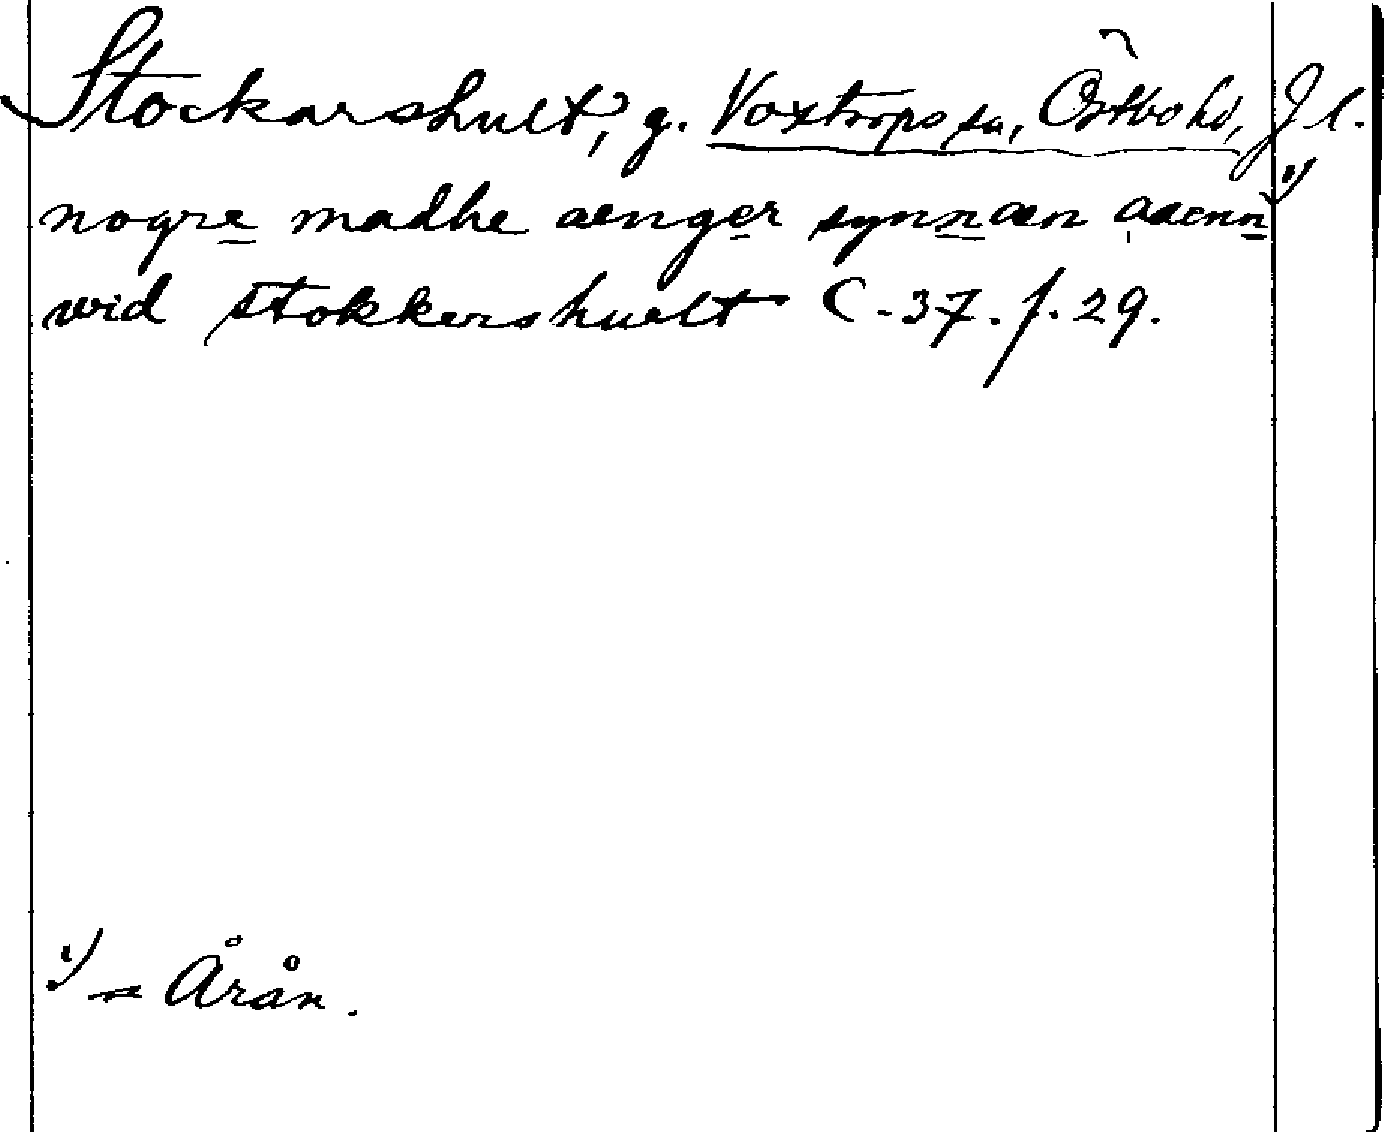 Stockarshult, g. Voxtorps sn, Östbo hd, Jl.
nogre madhe aenger synnæn aaenn 1)
wid stokkershuelt C. 37. f. 29.
1) = Årån.